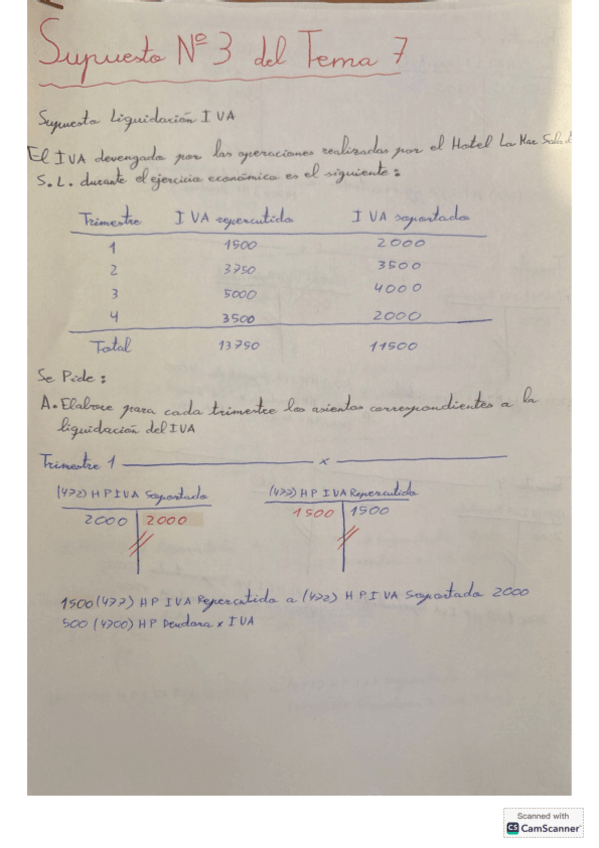 Supuesto Nº 3 del Tema 7
Supuesto Liquidación IVA
El IVA devengado por las operaciones realizadas por el Hotel La Mar Salada
S.L. durante el ejercicio económico es el siguiente:
Trimestre IVA repercutido IVA soportado
1 1500 2000
2 3750 3500
3 5000 4000
4 3500 2000
Total 13750 11500
Se Pide:
A. Elabore para cada trimestre los asientos correspondientes a la
liquidación del IVA
Trimestre 1 x
(472) HP IVA Soportado (477) HP IVA Repercutido
2000 2000 1500 1500
1500 (477) HP IVA Repercutido a (472) HP IVA Soportado 2000
500 (4700) HP Deudora x IVA
Scanned with
CS CamScanner